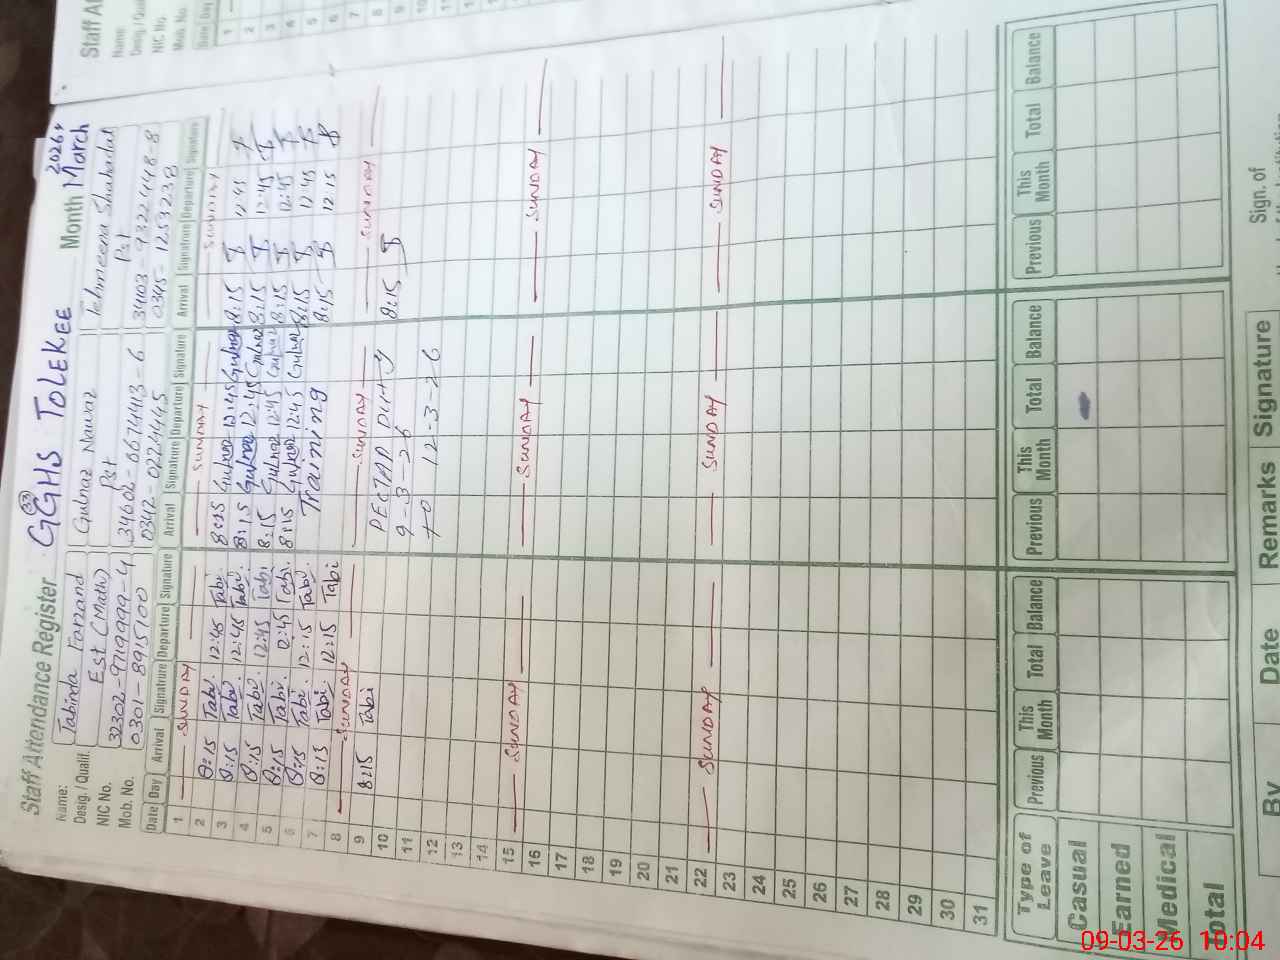 Staff Attendance Register GGHS TOLEKEE Month March 2026
Name: Tabinda Farzand Gulnaz Nawaz Tehmeena Shahadat
Desig. / Qualif. Est (Math) Pst Pst
NIC No. 32302-9719999-4 34602-6674413-6 34403-9322448-8
Mob. No. 0301-8915100 0342-0224445 0345-1253238
Date Day Arrival Signatrure Departure Signature Arrival Signature Departure Signature Arrival Signatrure Departure Signature
1 SUNDAY SUNDAY SUNDAY
2 8:15 Tabi 12:45 Tabi 8:15 Gulnaz 12:45 Gulnaz 8:15 12:45
3 8:15 Tabi 12:45 Tabi 8:15 Gulnaz 12:45 Gulnaz 8:15 12:45
4 8:15 Tabi 12:45 Tabi 8:15 Gulnaz 12:45 Gulnaz 8:15 12:45
5 8:15 Tabi 12:45 Tabi 8:15 Gulnaz 12:45 Gulnaz 8:15 12:45
6 8:15 Tabi 12:15 Tabi Training 8:15 12:15
7 8:15 Tabi 12:15 Tabi
8 SUNDAY SUNDAY SUNDAY
9 8:15 Tabi PECTAA DUTY 8:15
10 9-3-26
11 to 12-3-26
12
13
14
15 SUNDAY SUNDAY SUNDAY
16
17
18
19
20
21
22 SUNDAY SUNDAY SUNDAY
23
24
25
26
27
28
29
30
31
Type of Leave Previous This Month Total Balance Previous This Month Total Balance Previous This Month Total Balance
Casual
Earned
Medical
Total
By Date Remarks Signature Sign. of
09-03-26 10:04